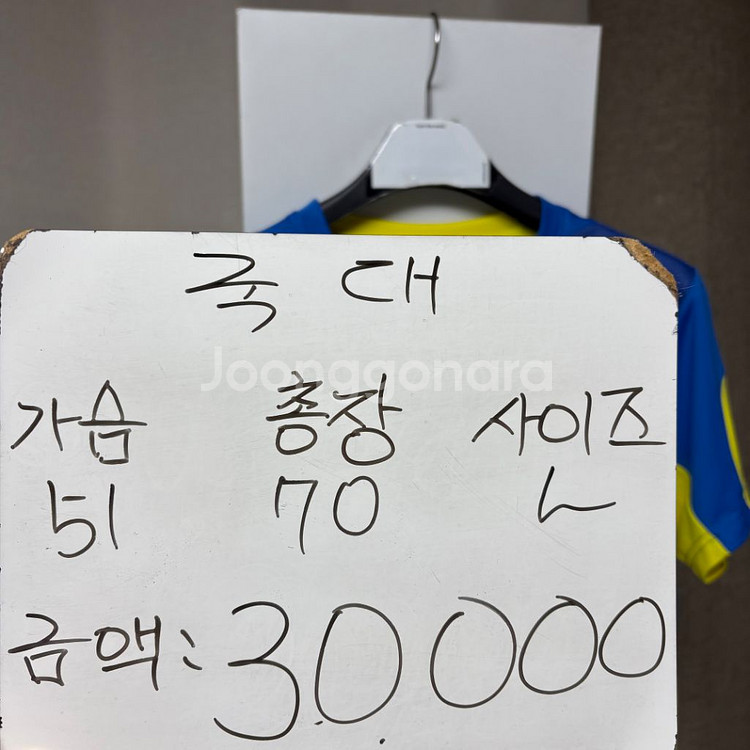 국대
Joonggonara
가슴 총장 사이즈
51 70 L
금액: 30.000